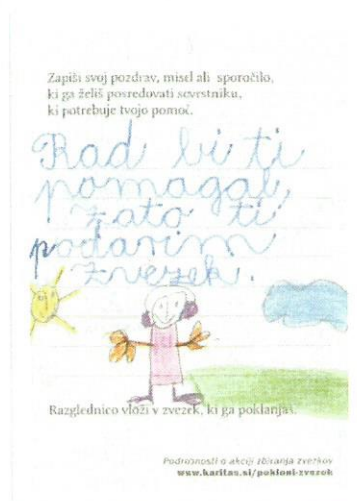 Zapiši svoj pozdrav, misel ali sporočilo,
ki ga želiš posredovati sovrstniku,
ki potrebuje tvojo pomoč.
Rad bi ti
pomagal,
zato ti
podarim
zvezek.
Razglednico vloži v zvezek, ki ga poklanjaš.
Podrobnosti o akciji zbiranja zvezkov
www.karitas.si/pokloni-zvezek